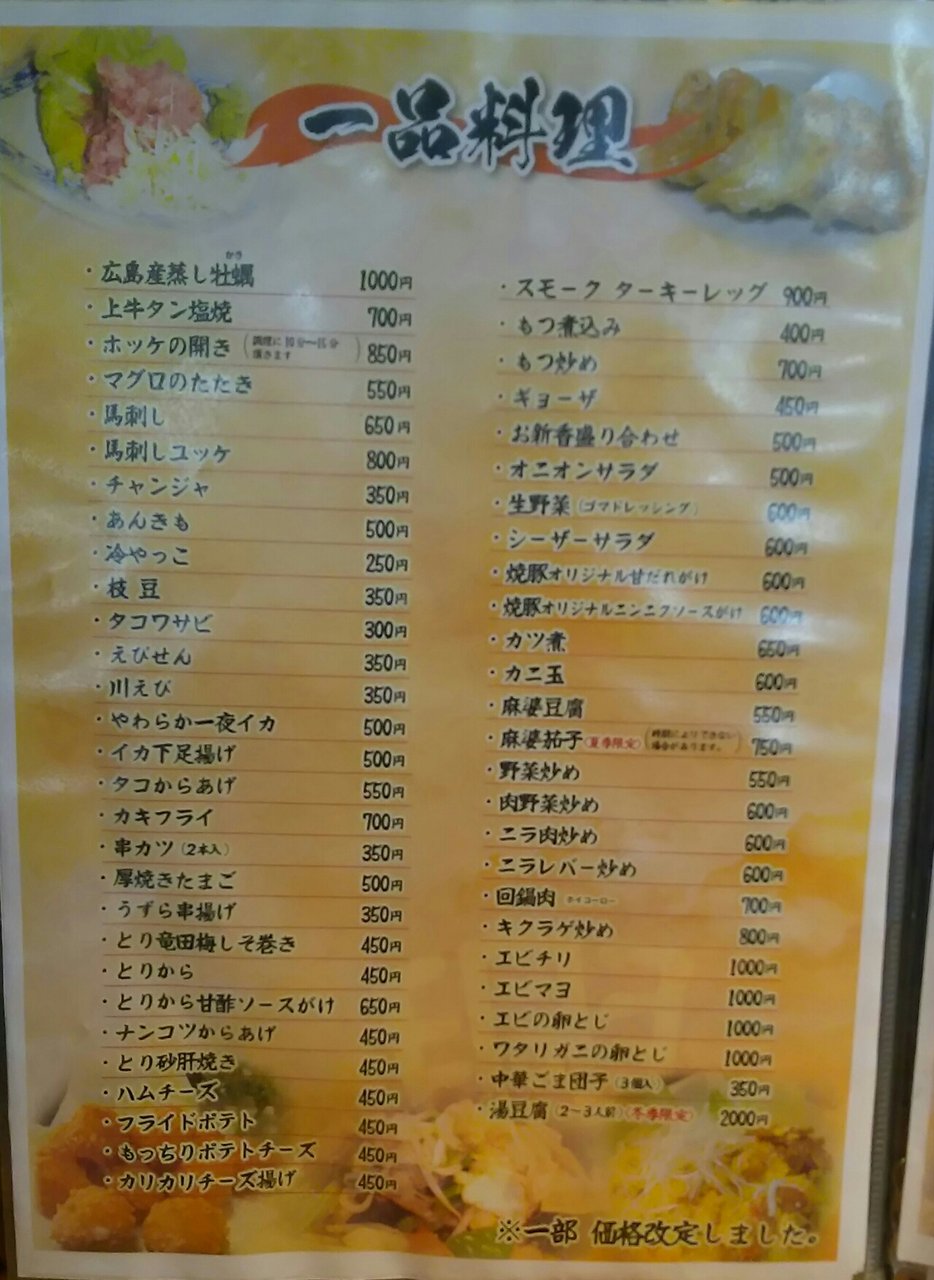 一品料理
・広島産蒸し牡蠣 かき 1000円
・上牛タン塩焼 700円
・ホッケの開き (調理に10分〜15分頂きます) 850円
・マグロのたたき 550円
・馬刺し 650円
・馬刺しユッケ 800円
・チャンジャ 350円
・あんきも 500円
・冷やっこ 250円
・枝豆 350円
・タコワサビ 300円
・えびせん 350円
・川えび 350円
・やわらか一夜イカ 500円
・イカ下足揚げ 500円
・タコからあげ 550円
・カキフライ 700円
・串カツ(2本入) 350円
・厚焼きたまご 500円
・うずら串揚げ 350円
・とり竜田梅しそ巻き 450円
・とりから 450円
・とりから甘酢ソースがけ 650円
・ナンコツからあげ 450円
・とり砂肝焼き 450円
・ハムチーズ 450円
・フライドポテト 450円
・もっちりポテトチーズ 450円
・カリカリチーズ揚げ 450円
・スモーク ターキーレッグ 900円
・もつ煮込み 400円
・もつ炒め 700円
・ギョーザ 450円
・お新香盛り合わせ 500円
・オニオンサラダ 500円
・生野菜(ゴマドレッシング) 600円
・シーザーサラダ 600円
・焼豚オリジナル甘だれがけ 600円
・焼豚オリジナルニンニクソースがけ 600円
・カツ煮 650円
・カニ玉 600円
・麻婆豆腐 550円
・麻婆茄子(夏季限定) (時期によりできない場合があります。) 750円
・野菜炒め 550円
・肉野菜炒め 600円
・ニラ肉炒め 600円
・ニラレバー炒め 600円
・回鍋肉 ホイコーロー 700円
・キクラゲ炒め 800円
・エビチリ 1000円
・エビマヨ 1000円
・エビの卵とじ 1000円
・ワタリガニの卵とじ 1000円
・中華ごま団子(3個入) 350円
・湯豆腐(2〜3人前)(冬季限定) 2000円
※一部 価格改定しました。